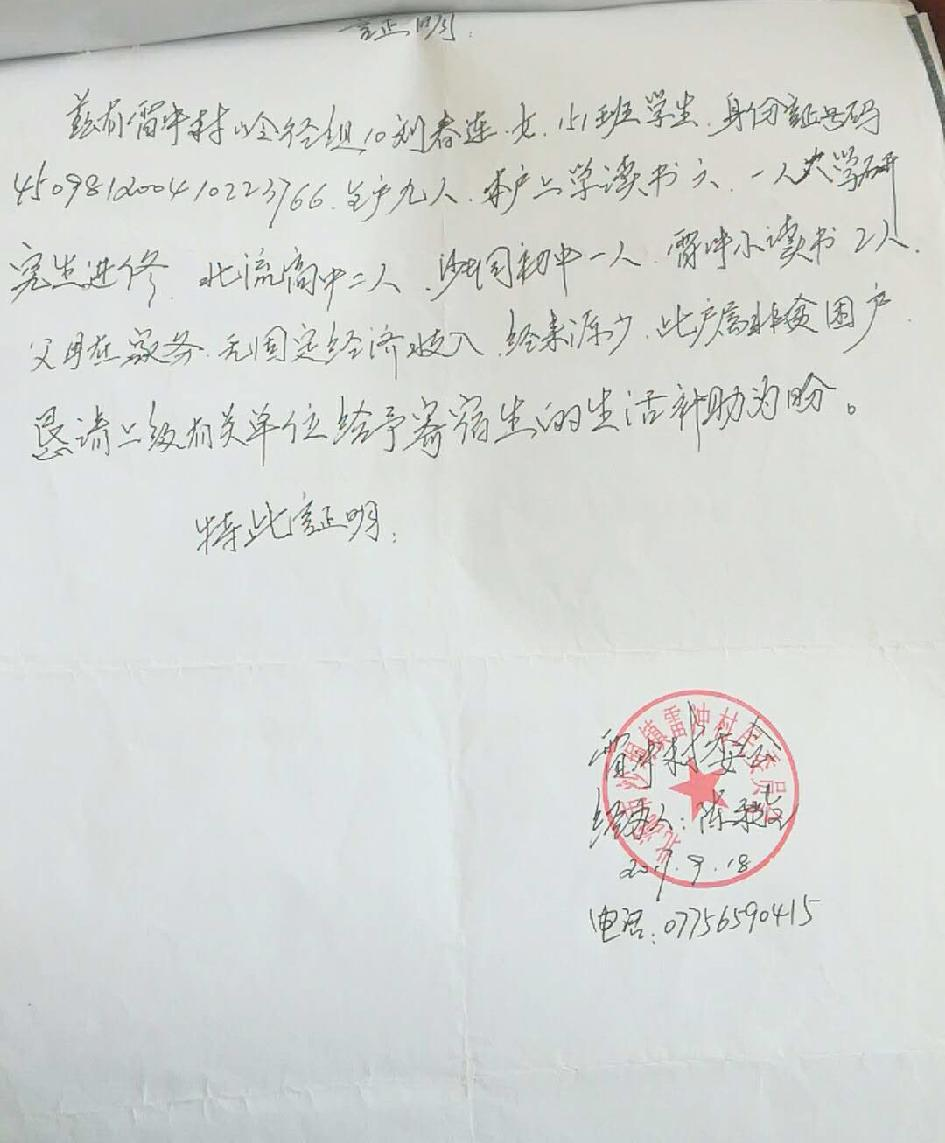 証明:
兹有雷冲村岭径组10刘春连.女.151班学生.身份証号码
450981200410223766.全户九人.本户上学读书六.一人大学研
究生进修.北流高中二人.沙垌初中一人.雷冲小读书2人.
父母在家务.无固定经济收入.经来源少.此户属非贫困户.
恳请上级有关单位给予寄宿生的生活补助为盼。
特此証明:
雷冲村委会
经办人:陈
2017.9.18
电话:07756590415